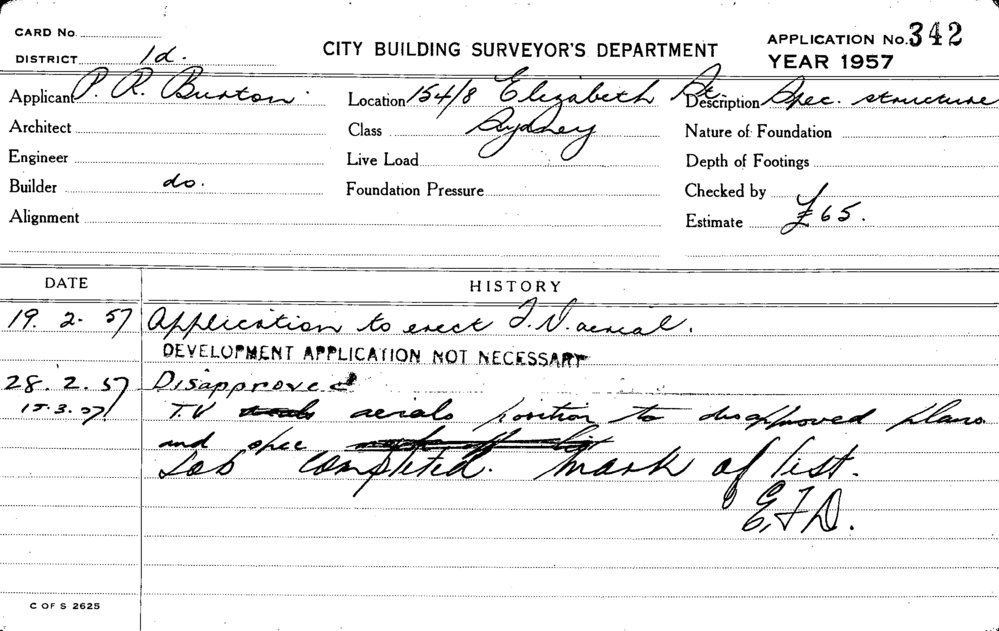 CARD No.
DISTRICT 1d.
CITY BUILDING SURVEYOR'S DEPARTMENT
APPLICATION No. 342
YEAR 1957
Applicant P. R. Burton Location 154/8 Elizabeth St Description Spec. structure
Architect Class Sydney Nature of Foundation
Engineer Live Load Depth of Footings
Builder do. Foundation Pressure Checked by
Alignment Estimate £65.
DATE HISTORY
19. 2. 57 Application to erect T.V. aerial.
DEVELOPMENT APPLICATION NOT NECESSARY
28. 2. 57 Disapproved
15.3.57 T.V aerials position to disapproved plans
and spec
Job Completed. Mark of list.
E.F.D.
C OF S 2625